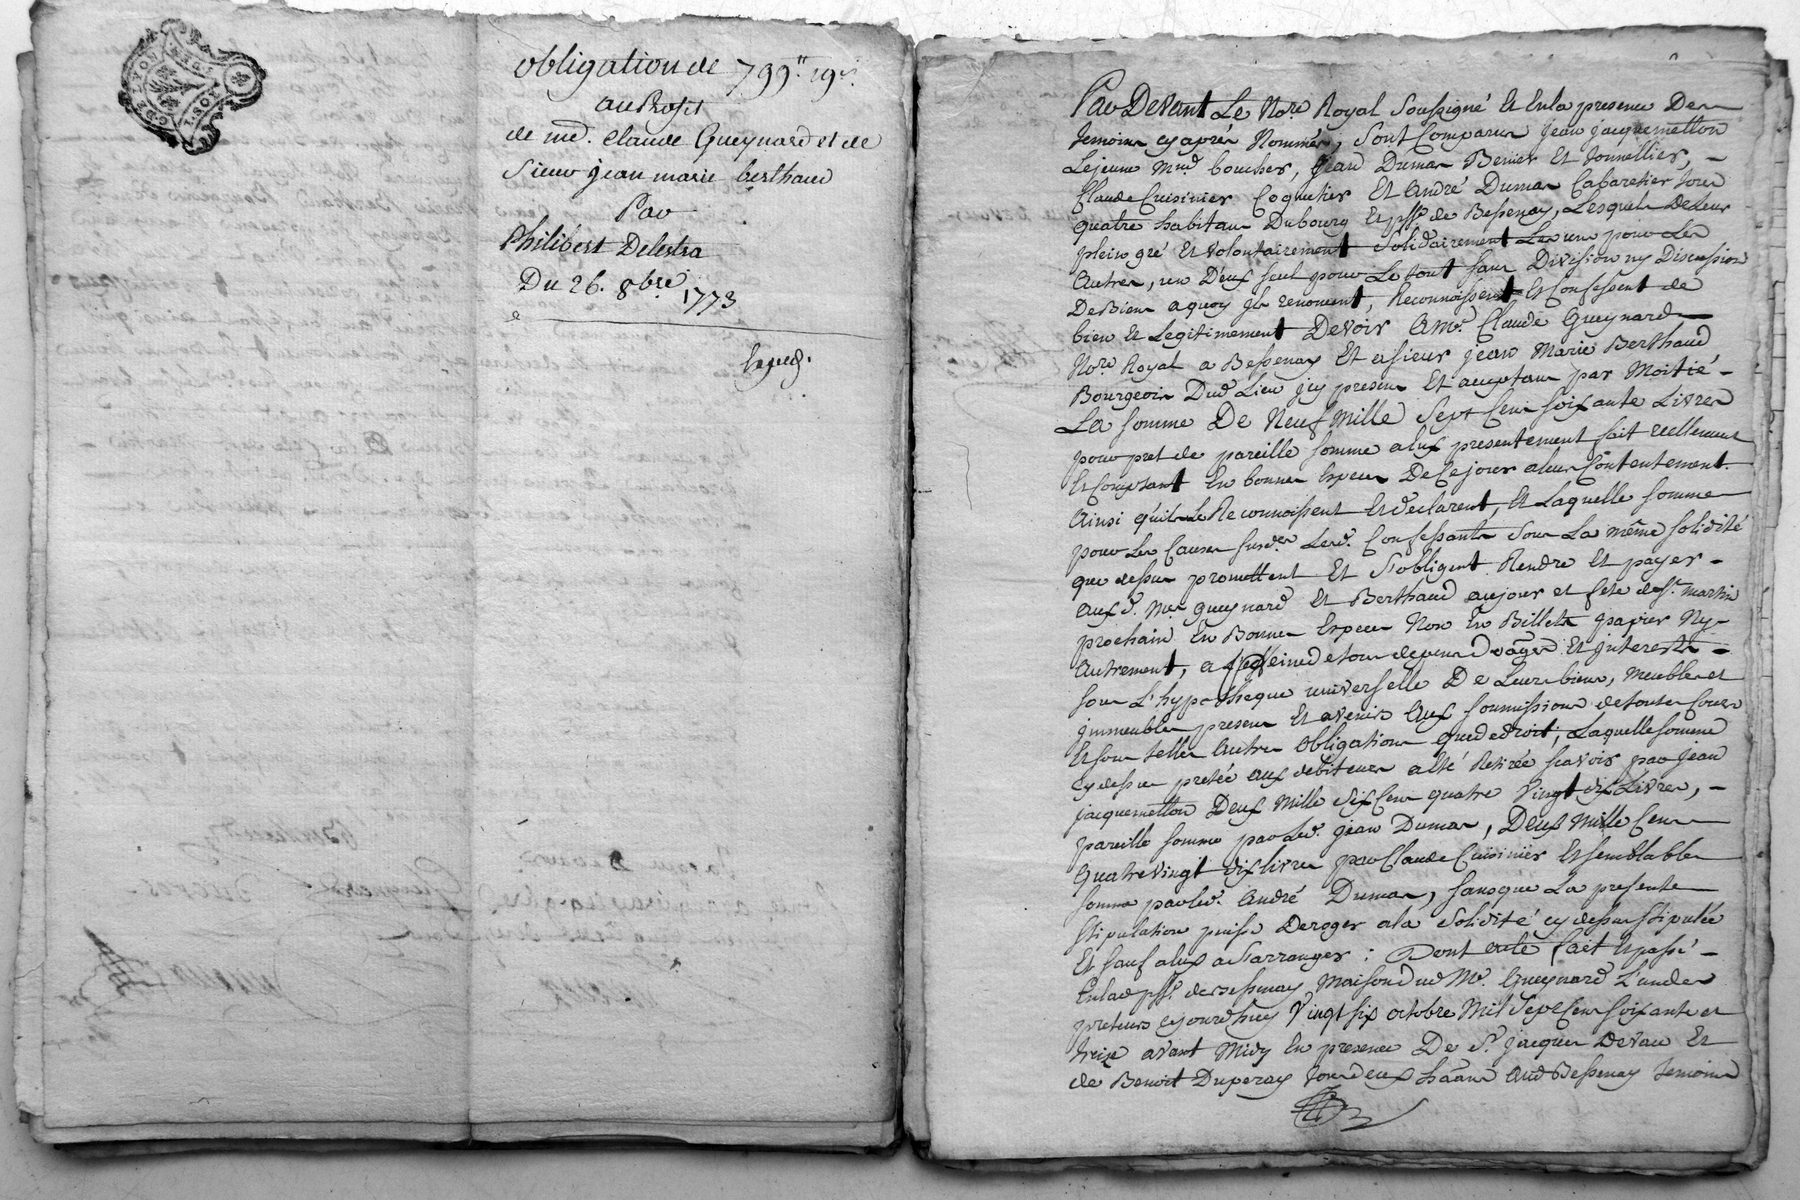 obligation de 799" 19s
au Profit
de md. Claude Gueynard et de
Sieur jean marie berthaud
Par
Philibert Delestra
Du 26. 8bre 1773
Par Devant Le Nore Royal Soussigné Et Enla presence Des
temoins cyaprés Nommés, Sont Comparus Jean jacquemetton
Lejeune Md boucher, Jean Dumas Benier Et tonnellier,
Claude Cuisinier Coquetier Et André Dumas Cabaretier tous
quatre habitans Dubourg Et psse de Bessenay, Lesquels Deleur
plein gré Et volontairement Solidairement Les uns pour Les
Autres, un D'eux seul pour Le tout sans Division ny Discussion
De Biens aquoy ils renoncent, Reconnoissent Et Confessent de
bien Et Legitimement Devoir AMe. Claude Gueynard
Nore Royal a Bessenay Et asieur jean Marie Berthaud
Bourgeois Dud Lieu jcy presens Et acceptans par Moitié
La somme De Neuf Mille Sept Cens soixante Livres
pour pret de pareille somme aEux presentement fait reellement
Et Comptant En bonnes Especes De Cejour aleur Contentement.
Ainsi qu'ils Le Reconnoissent Et declarent, Et Laquelle somme
pour Les Causes susd.es Lesd. Confessants Sous La même solidité
que dessus promettent Et S'obligent Rendre Et payer
auxd. Mes Gueynard Et Berthaud aujour et fete de St. martin
prochain En Bonnes Especes Non En Billets papier Ny
Autrement, a peine de tous depens domages Et jnterests
sous L'hypotheque universelle De Leurs biens, Meubles et
jmmeubles presens Et avenir Aux soumissions detoutes Cours
Et sous telles Autres obligations quededroit, Laquelle somme
cy dessus pretée aux debiteurs a Eté Retirée scavoir par jean
jacquemetton Deux Mille Six Cens quatre Vingt dix Livres,
pareille somme par Led. jean Dumas, Deux Mille Cens
quatre Vingt dix livres par Claude Cuisinier Et semblable
somme par led. André Dumas, sans que La presente
stipulation puisse Deroger ala Solidité cy dessus stipulée
Et sauf aEux a S'arranger : Dont acte fait Et passé
Enlad psse. de Bessenay Maison dud Me. Gueynard L'un des
preteurs cejourdhuy Vingt six octobre Mil Sept Cens soixante et
treize avant Midy En presence De Sr. jacques Devaux Et
de Benoit Duperay tous deux hãans aud Bessenay temoins